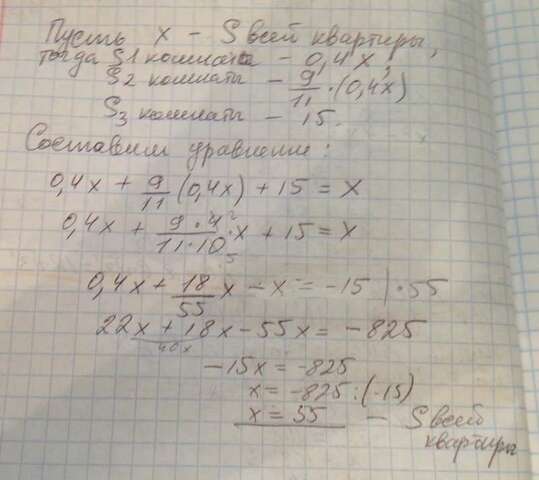 Пусть x - S всей квартиры,
тогда S1 комнаты - 0,4x,
S2 комнаты - 9/11 · (0,4x)
S3 комнаты - 15.
Составим уравнение:
0,4x + 9/11 (0,4x) + 15 = x
0,4x + 9·4²/11·10₅ · x + 15 = x
0,4x + 18/55 x - x = -15 | ·55
22x + 18x - 55x = -825
40x
-15x = -825
x = -825 : (-15)
x = 55 - S всей
квартиры